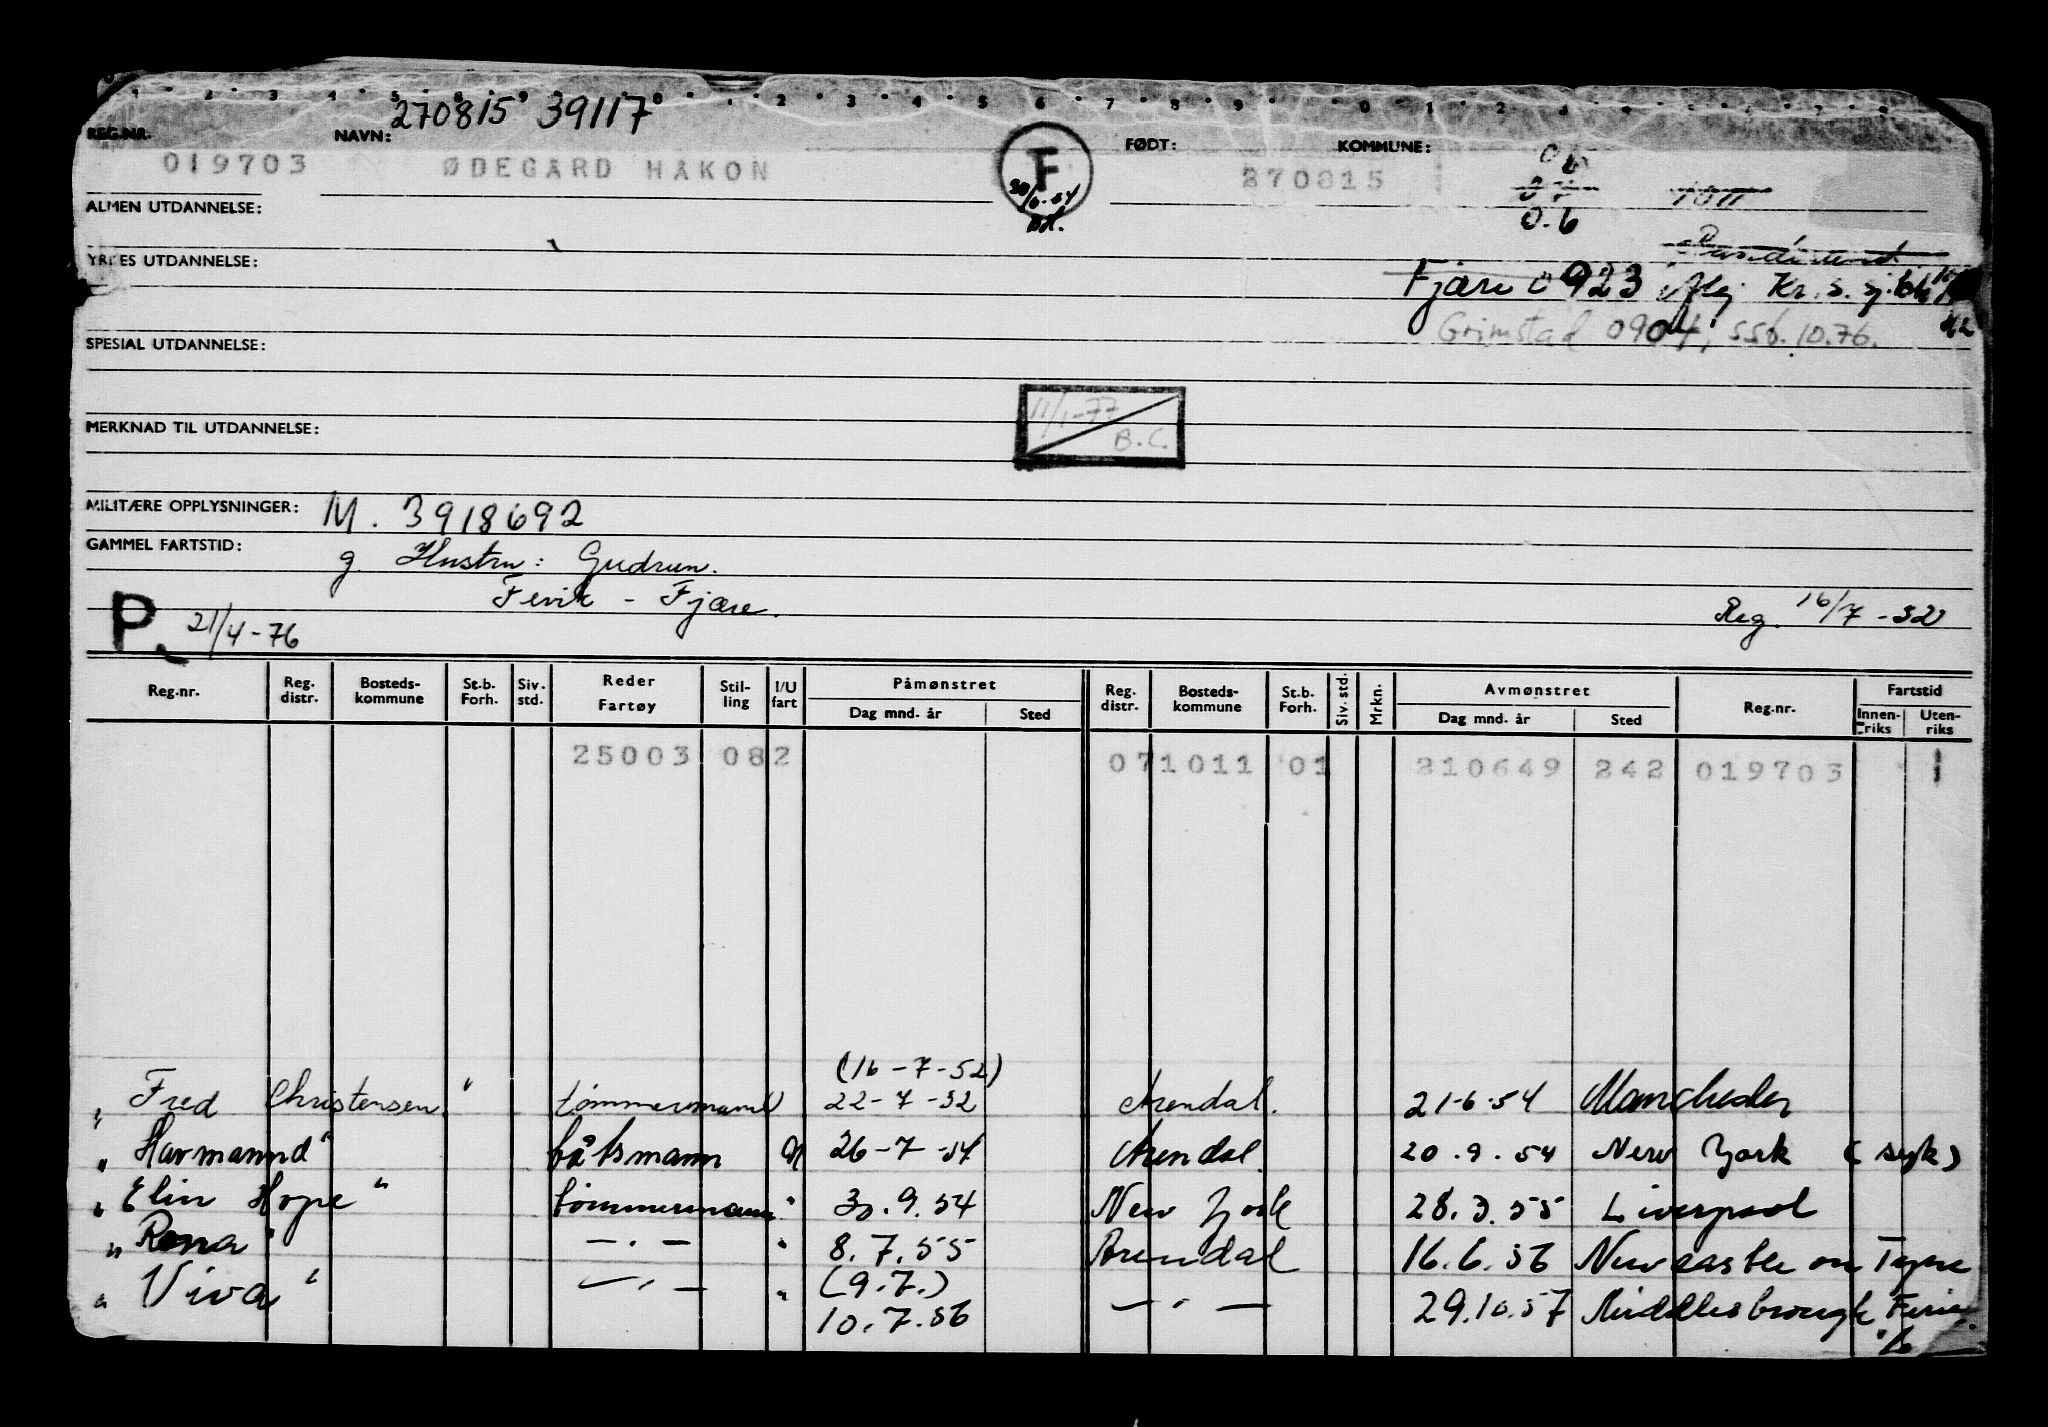 270815 39117
REG.NR. NAVN: FØDT: KOMMUNE:
019703 ØDEGÅRD HÅKON F 270815 06
07 1011
ALMEN UTDANNELSE: 0.6
YRKES UTDANNELSE:
Fjære 0923
Grimstad 0904, ssb. 10.76.
SPESIAL UTDANNELSE:
11/1-77
B.C.
MERKNAD TIL UTDANNELSE:
MILITÆRE OPPLYSNINGER: M. 3918692
GAMMEL FARTSTID: g. Hustru: Gudrun.
Fevik - Fjære.
P. 21/4-76 Reg. 16/7-52
Reg.nr. Reg. distr. Bosteds- kommune St.b. Forh. Siv. std. Reder Fartøy Stil- ling I/U fart Påmønstret Dag mnd. år Sted Reg. distr. Bosteds- kommune St.b. Forh. Siv. std. Mrkn. Avmønstret Dag mnd. år Sted Reg.nr. Fartstid Innen- riks Uten- riks
25003 082 071011 01 210649 242 019703 1
(16-7-52)
" Fred Christensen " tømmermann U 22-7-52 Arendal. 21-6-54 Manchester
" Havmannd " båtsmann U 26-7-54 Arendal. 20.9.54 New York (syk)
" Elin Hope " tømmermann " 30.9.54 New York 28.3.55 Liverpool
" Rona " — . — " 8.7.55 Arendal 16.6.56 Newcastle on Tyne
" Viva " — . — " (9.7.)
10.7.56 — " — 29.10.57 Middlesbrough Ferie